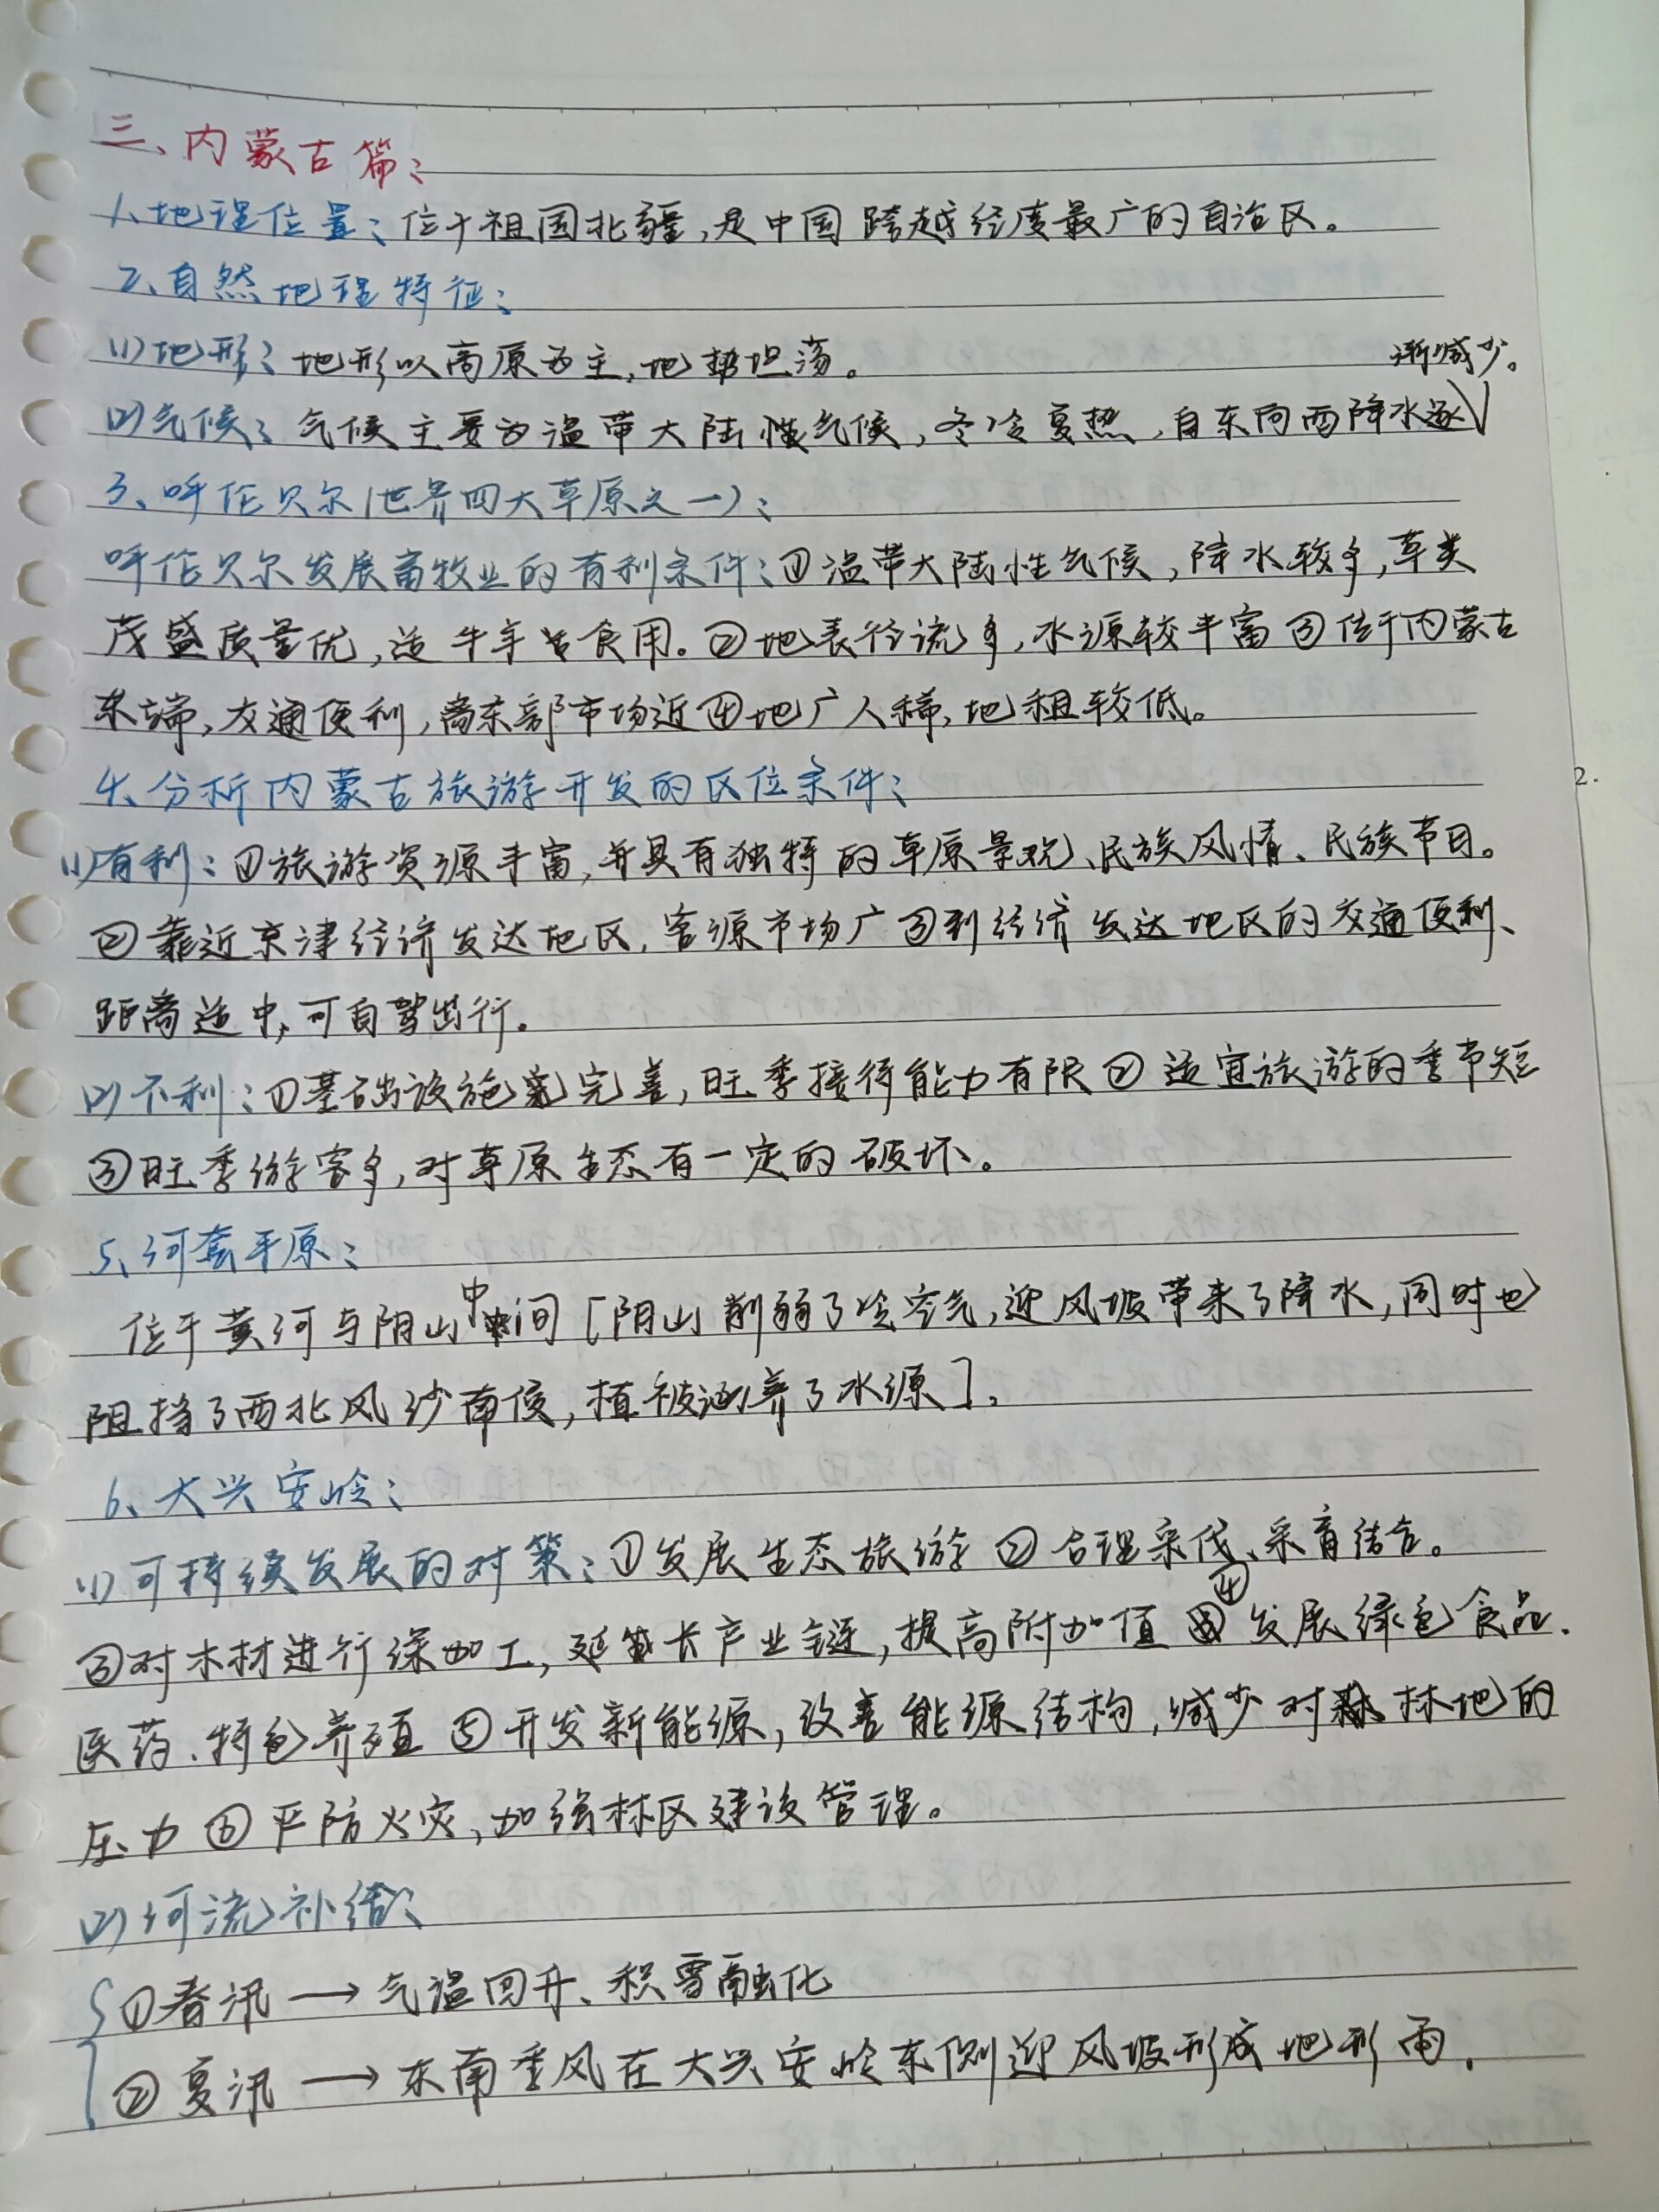 三、内蒙古篇：
1、地理位置：位于祖国北疆，是中国跨越经度最广的自治区。
2、自然地理特征：
(1)地形：地形以高原为主，地势坦荡。
(2)气候：气候主要为温带大陆性气候，冬冷夏热，自东向西降水逐
渐减少。
3、呼伦贝尔(世界四大草原之一)：
呼伦贝尔发展畜牧业的有利条件：①温带大陆性气候，降水较多，草类
茂盛质量优，适牛羊食用。②地表径流多，水源较丰富③位于内蒙古
东端，交通便利，离东部市场近④地广人稀，地租较低。
4、分析内蒙古旅游开发的区位条件：
(1)有利：①旅游资源丰富，并具有独特的草原景观、民族风情、民族节日。
②靠近京津经济发达地区，客源市场广③到经济发达地区的交通便利、
距离适中，可自驾出行。
(2)不利：①基础设施完善，旺季接待能力有限②适宜旅游的季节短
③旺季游客多，对草原生态有一定的破坏。
5、河套平原：
位于黄河与阴山中间[阴山削弱了冷空气，迎风坡带来了降水，同时也
阻挡了西北风沙南侵，植被涵养了水源]。
6、大兴安岭：
(1)可持续发展的对策：①发展生态旅游②合理采伐、采育结合。
③对木材进行深加工，延长产业链，提高附加值④发展绿色食品、
医药、特色养殖⑤开发新能源，改善能源结构，减少对林地的
压力⑥严防火灾，加强林区建设管理。
(2)河流补给：
①春汛→气温回升、积雪融化
②夏汛→东南季风在大兴安岭东侧迎风坡形成地形雨。
2.